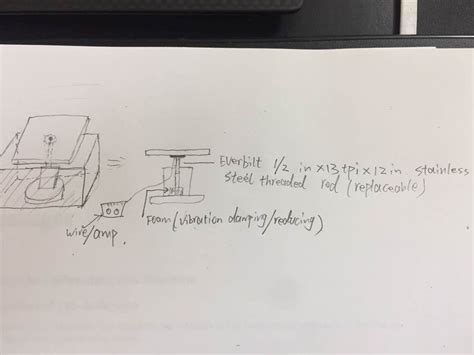 Everbilt 1/2 in x13 tpi x12 in. stainless
steel threaded rod (replaceable)
Foam (vibration damping/reducing)
wire/amp.